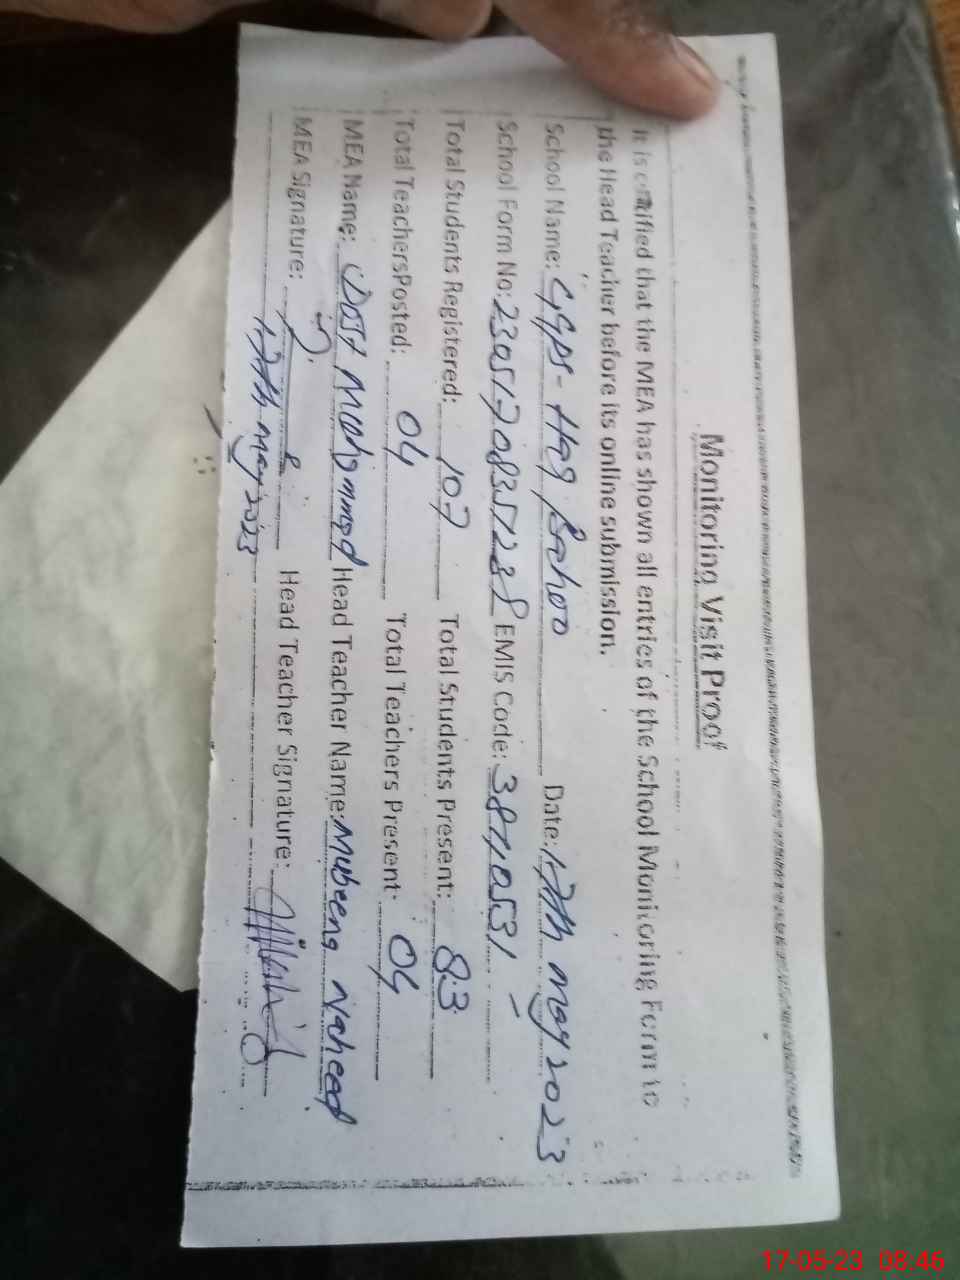 Monitoring Visit Proof
It is certified that the MEA has shown all entries of the School Monitoring Form to
the Head Teacher before its online submission.
School Name: GGPS - Haq Bahoo Date: 17th may 2023
School Form No: EMIS Code: 38410531
Total Students Registered: 107 Total Students Present: 83
Total TeachersPosted: 04 Total Teachers Present: 04
MEA Name: DOST Mohammad Head Teacher Name: Mubeena Naheed
MEA Signature: Head Teacher Signature:
17th may 2023
17-05-23 08:46